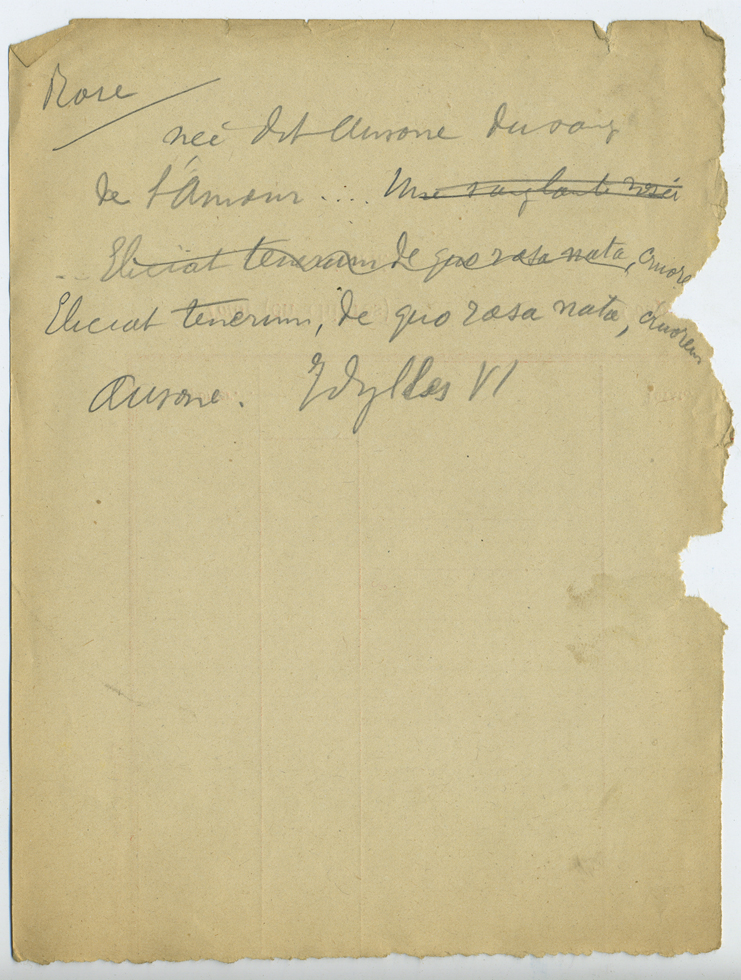 Rose
née dit Ausone du sang
de l'Amour .... Une sanglante rosée
Eliciat tenerum de quo rosa nata, cruore
Eliciat tenerum, de quo rosa nata, cruorem
Ausone. Idylles VI